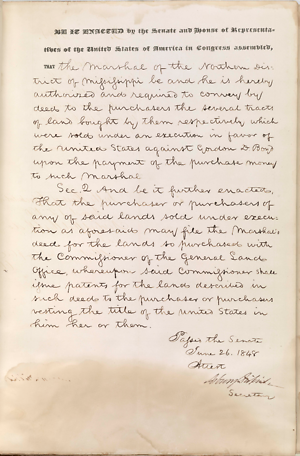 BE IT ENACTED by the Senate and House of Representa-
tives of the United States of America in Congress assembled,
THAT the Marshal of the Northern Dis-
trict of Mississippi be and he is hereby
authorized and required to convey by
deed to the purchasers the several tracts
of land bought by them respectively which
were sold under an execution in favor of
the United States against Gordon D. Boyd
upon the payment of the purchase money
to such Marshal
Sec. 2 And be it further enacted,
That the purchaser or purchasers of
any of said lands sold under execu
tion as aforesaid may file the Marshal's
deed for the lands so purchased with
the Commissioner of the General Land
Office, whereupon said Commissioner shall
issue patents for the lands described in
such deed to the purchaser or purchasers
vesting the title of the United States in
him her or them.
Passed the Senate
June 26. 1848
Attest
Secretary